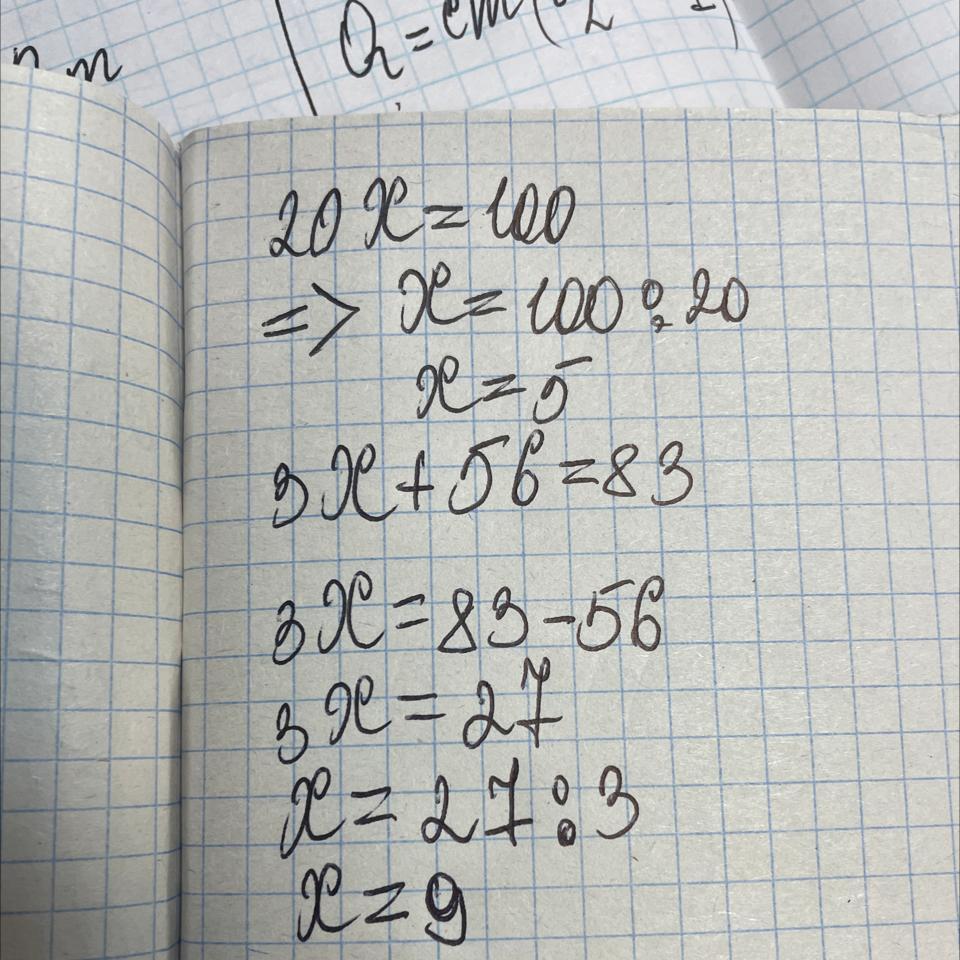 n m
Q = cm(
20x=100
=> x=100:20
x=5
3x+56=83
3x=83-56
3x=27
x=27:3
x=9